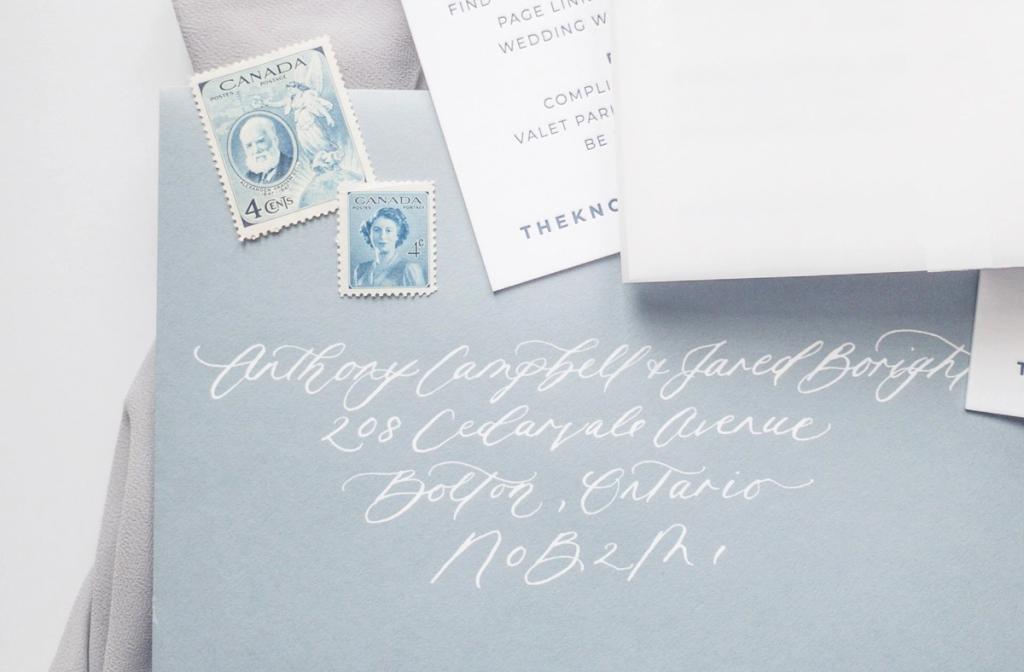 CANADA
POSTES POSTAGE
4 CENTS
CANADA
POSTES POSTAGE
4¢
FIND
PAGE LINK
WEDDING W
COMPLI
VALET PAR
BE
THEKNO
Anthony Campbell & Jared Boright
208 Cedarvale Avenue
Bolton, Ontario
N0B2M1